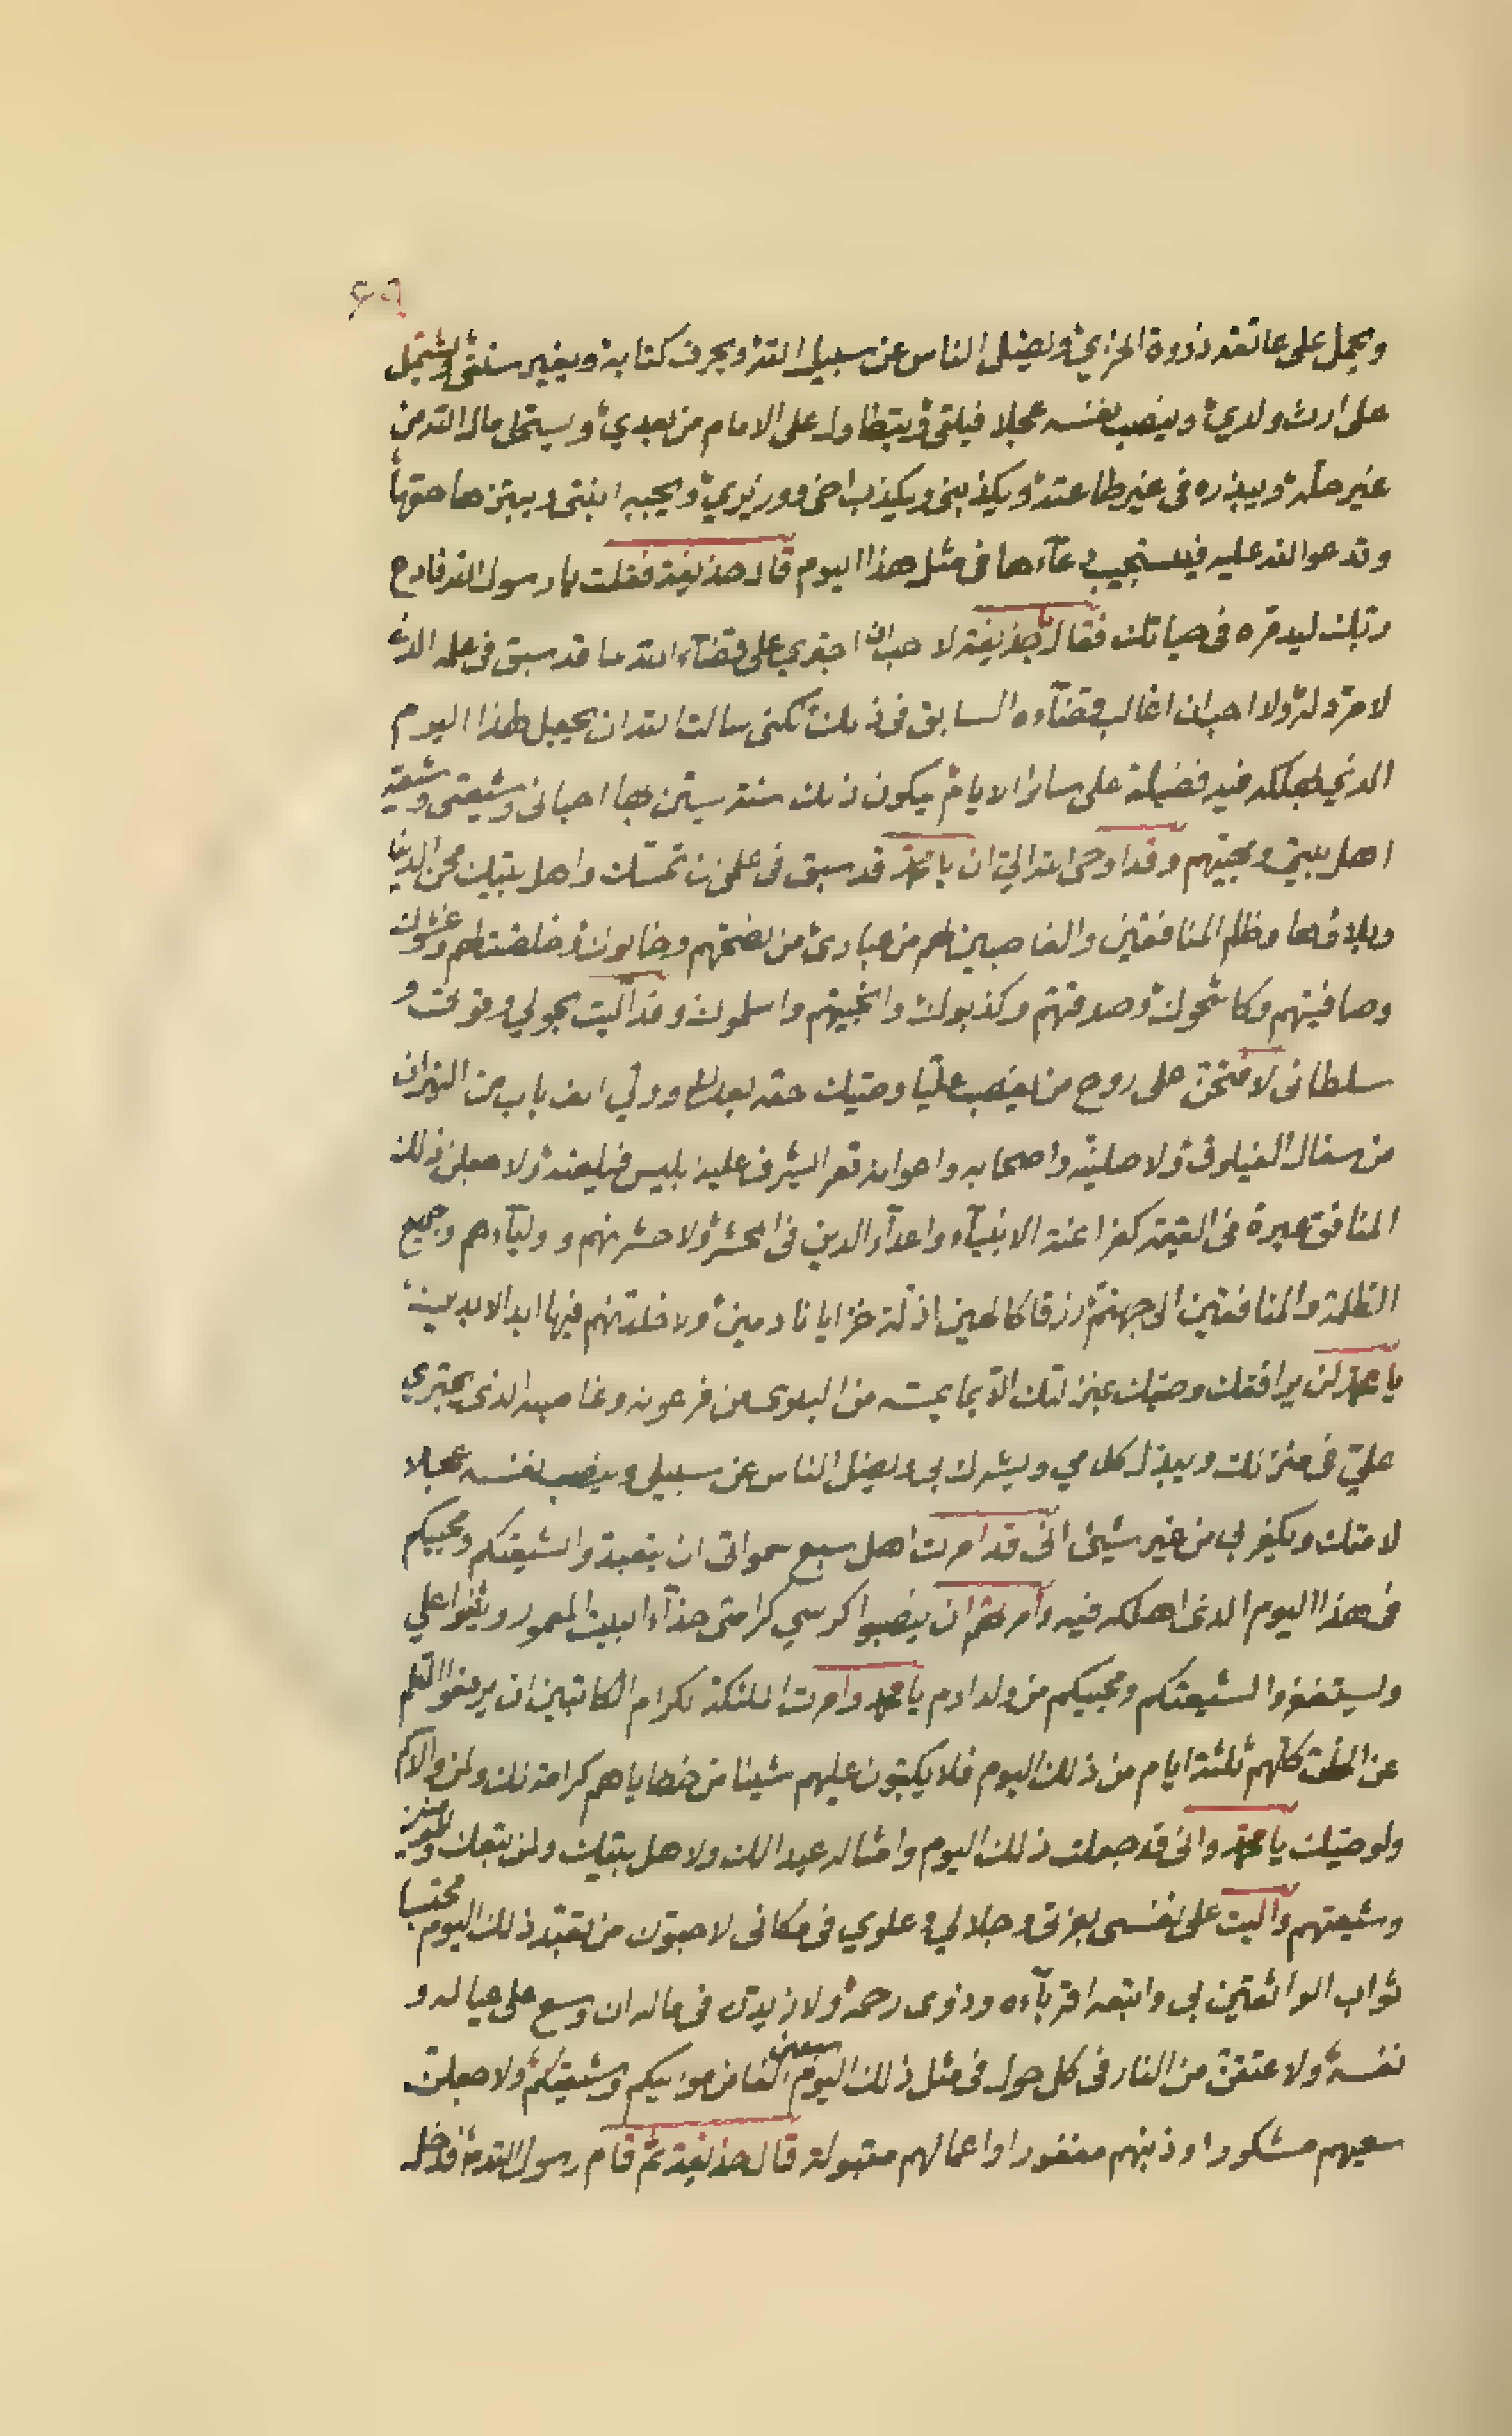 ۶۹
ويحمل على عاتقه ذروة الخزي ويضل الناس عن سبيل الله ويحرف كتابه ويغير سنتى ويشتمل
على ارث ولدي وينصب نفسه عجلا فيلتى ويتطاول على الامام من بعدي ويستحل مال الله من
غير حله وينذره فى غير طاعته ويكذبنى ويكذب اخى ووزيري ويحبه ابنتى ويبتزها حقها
وتدعو الله عليه فيستجيب دعآءها فى مثل هذا اليوم قال حذيفة فقلت يا رسول الله فادع
ربك ليدمره فى حياتك فقال يا حذيفة لا احب ان اجترى على قضآء الله ما قد سبق فى علمه الذى
لا مرد له ولا احب ان اغالب قضآءه السابق فى ذلك لكنى سالت الله ان يجعل لهذا اليوم
الذي يهلكه فيه فضيلة على سائر الايام يكون ذلك سنة يستن بها احبائى وشيعتى وشيعة
اهل بيتى ومحبيهم وقد اوحى الله الي ان يا محمد قد سبق فى علمى ان تمسك واهل بيتك محن الدنيا
وبلاؤها وظلم المنافقين والغاصبين لهم من عبادى من نصحتهم وخانوك وخلصت لهم وغشوك
وصافيتهم وكاشحوك وصدقتهم وكذبوك وانجيتهم واسلموك وقد آليت بحولي وقوتى و
سلطانى لافتحن على روح من يغصب عليا وصيك حقه بعدك ووليى الف باب من النيران
من سفال الفيلوق ولاصلينه واصحابه واعوانه قعر اليشرف عليه ابليس فيلعنه ولاجعلن ذلك
المنافق عبرة فى القيمة كفراعنة الانبيآء واعدآء الدين فى المحشر ولاحشرنهم واوليآءهم وجميع
الظلمة والمنافقين الى جهنم زرقا كالحين اذلة خزايا نادمين ولاخلدنهم فيها ابد الابدين
يا محمد لن يرافقك وصيك بمنزلتك الا بما يمسه من البلوى من فرعونه وغاصبه الذى يجترى
علي فى منزلك ويبدل كلامي ويشرك بي ويضل الناس عن سبيلى وينصب نفسه عجلا
لامتك ويكفر بي من غير شيئ انى قد امرت اهل سبع سمواتى ان يتعبدوا لشيعتكم ومحبيكم
فى هذا اليوم الذى اهلكه فيه وامرتهم ان ينصبوا كرسي كرامتى حذآء البيت المعمور ويثنوا علي
ويستغفروا لشيعتكم ومحبيكم من ولد ادم يا محمد وامرت الملئكة الكرام الكاتبين ان يرفعوا القلم
عن الخلق كلهم ثلثة ايام من ذلك اليوم فلا يكتبون عليهم شيئا من خطاياهم كرامة لك ولمن والاكم
ولوصيك يا محمد وانى قد جعلت ذلك اليوم وامثاله عيدا لك ولاهل بيتك ولمن تبعك والمؤمنين
وشيعتهم وآليت على نفسى بعزتى وجلالي وعلوي فى مكانى لاحبون من تعبد ذلك اليوم محتسبا
ثواب الواثقين بي واتبعه اقربآءه وذوى رحمه ولازيدن فى ماله ان وسع على عياله و
نفسه ولاعتقن من النار فى كل حول فى مثل ذلك اليوم سبعين الفا من مواليكم وشيعتكم ولاجعلن
سعيهم مشكورا وذنبهم مغفورا واعمالهم مقبولة قال حذيفة ثم قام رسول الله ص فدخل